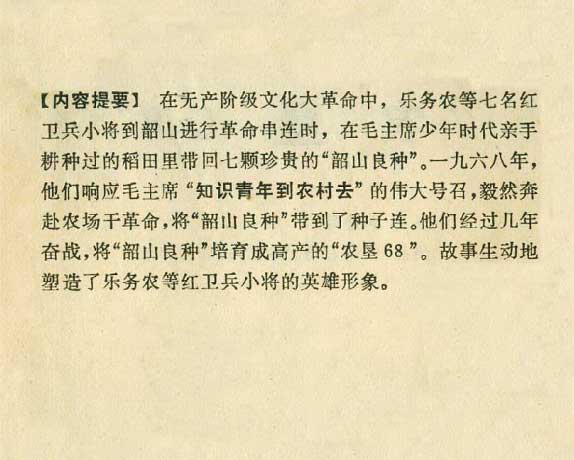 【内容提要】 在无产阶级文化大革命中，乐务农等七名红
卫兵小将到韶山进行革命串连时，在毛主席少年时代亲手
耕种过的稻田里带回七颗珍贵的“韶山良种”。一九六八年，
他们响应毛主席“知识青年到农村去”的伟大号召，毅然奔
赴农场干革命，将“韶山良种”带到了种子连。他们经过几年
奋战，将“韶山良种”培育成高产的“农垦68”。故事生动地
塑造了乐务农等红卫兵小将的英雄形象。